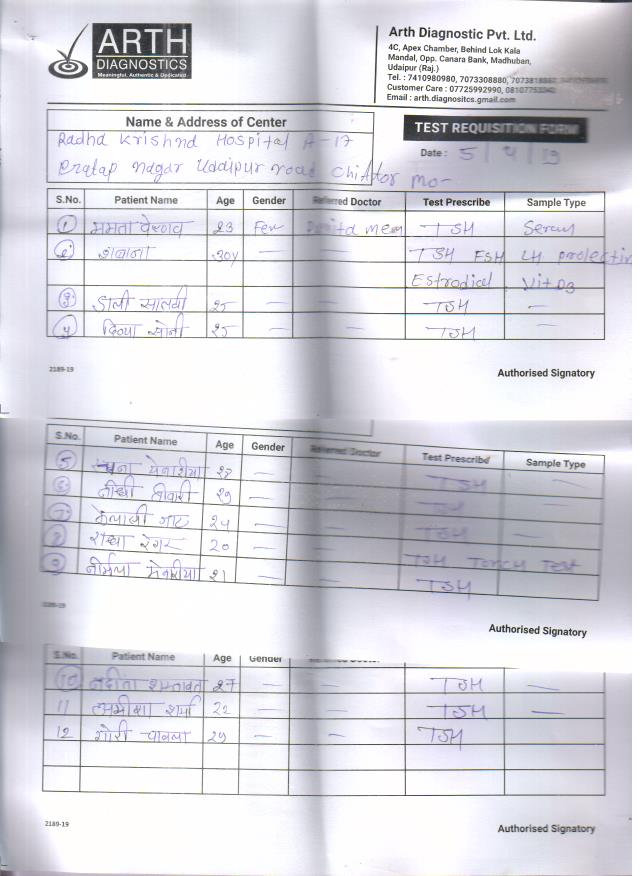 ARTH
DIAGNOSTICS
Meaningful, Authentic & Dedicated
Arth Diagnostic Pvt. Ltd.
4C, Apex Chamber, Behind Lok Kala
Mandal, Opp. Canara Bank, Madhuban,
Udaipur (Raj.)
Tel. : 7410980980, 7073308880,
Customer Care : 07725992990,
Email : arth.diagnositcs.gmail.com
Name & Address of Center
TEST REQUISITION FORM
Radha Krishna Hospital A-17
Pratap nagar Udaipur road Chittor mo-
Date : 5 | 4 | 19
S.No. Patient Name Age Gender Referred Doctor Test Prescribe Sample Type
1 ममता वैष्णव 23 Fem TSH Serum
2 शबाना 30y — — TSH FSH LH prolectin
Estradial Vit D3
3 डाली सालवी 25 — — TSH —
4 दिव्या सोनी 25 — — TSH —
2189-19
Authorised Signatory
S.No. Patient Name Age Gender Referred Doctor Test Prescribe Sample Type
5 — — TSH —
6 29 — — TSH —
7 जाट 24 — — TSH —
8 20 — — TSH Torch Test
9 21 — — TSH
2189-19
Authorised Signatory
S.No. Patient Name Age Gender Referred Doctor
10 27 — — TSH —
11 शर्मा 22 — — TSH —
12 29 — — TSH
2189-19
Authorised Signatory